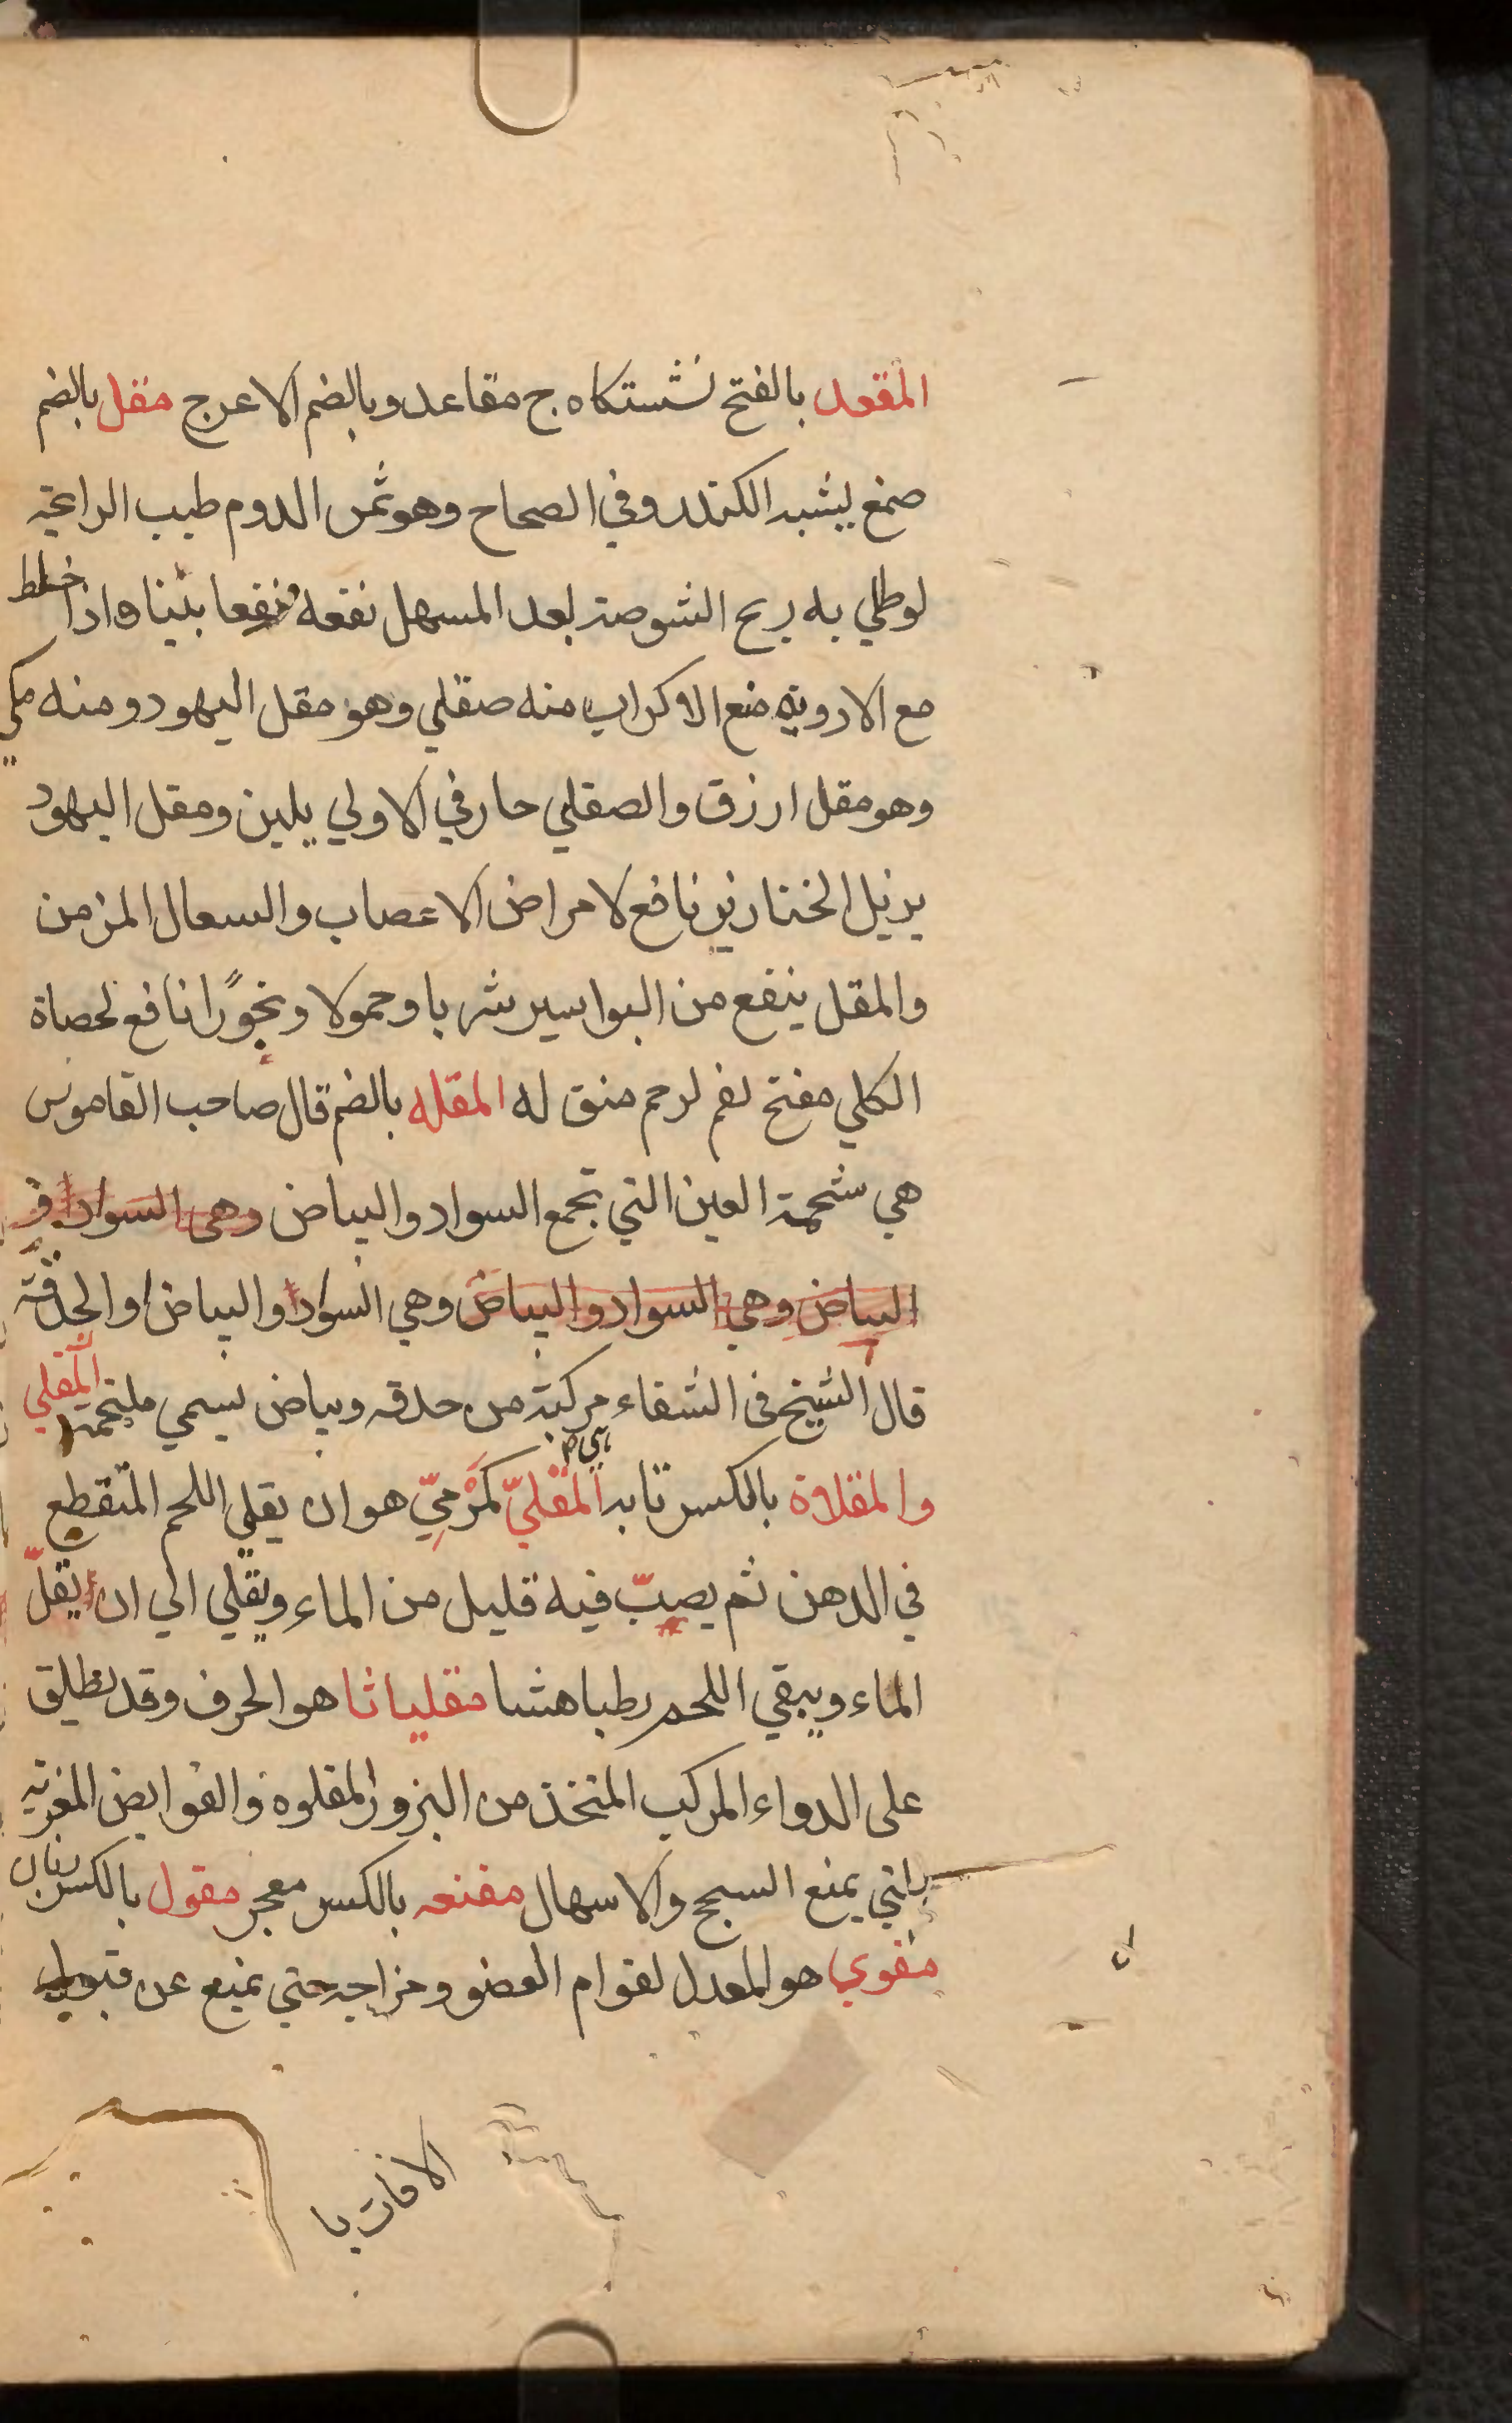 المقعد بالفتح نشستكاه ج مقاعد وبالضم الاعرج مقل بالضم
صمغ يشبه الكندر وفي الصحاح وهو ثمر الدوم طيب الرائحة
لوطلي به ريح الشوصة بعد المسهل نفعه نفعا بينا واذا خلط
مع الادويه منع منه صقلي وهو مقل اليهود ومنه مكي
وهو مقل ارزق والصقلي حار في الاولي يلين ومقل اليهود
يزيل الخنازير نافع لامراض الاعصاب والسعال المزمن
والمقل ينفع من البواسير شربا وحمولا وبخورًا نافع لحصاة
الكلي مفتح لفم لرحم منق له المقله بالضم قال صاحب القاموس
هي شحمة العين التي تجمع السواد والبياض وهي السواد و
البياض وهي السواد والبياض وهي السواد والبياض او الحدقة
قال الشيخ في الشفاء مركبة من حدقه وبياض يسمي ملتحمة المقلي
والمقلاة بالكسر تابه المقليّ كمَرْمِيّ هو ان يقلي اللحم المتقطع
في الدهن ثم يصبّ فيه قليل من الماء ويقلي الي ان يقلّ
الماء ويبقي اللحم رطبا هشا مقلياثا هو الحرف وقد يطلق
على الدواء المركب المتخذ من البزور المقلوه والقوابض المغريه
يمنع السحج والاسهال مقنعه بالكسر معجر مقول بالكسر زبان
مقوي هو المعدل لقوام العضو ومزاجه حتي يمنع عن قبول
الافات يا